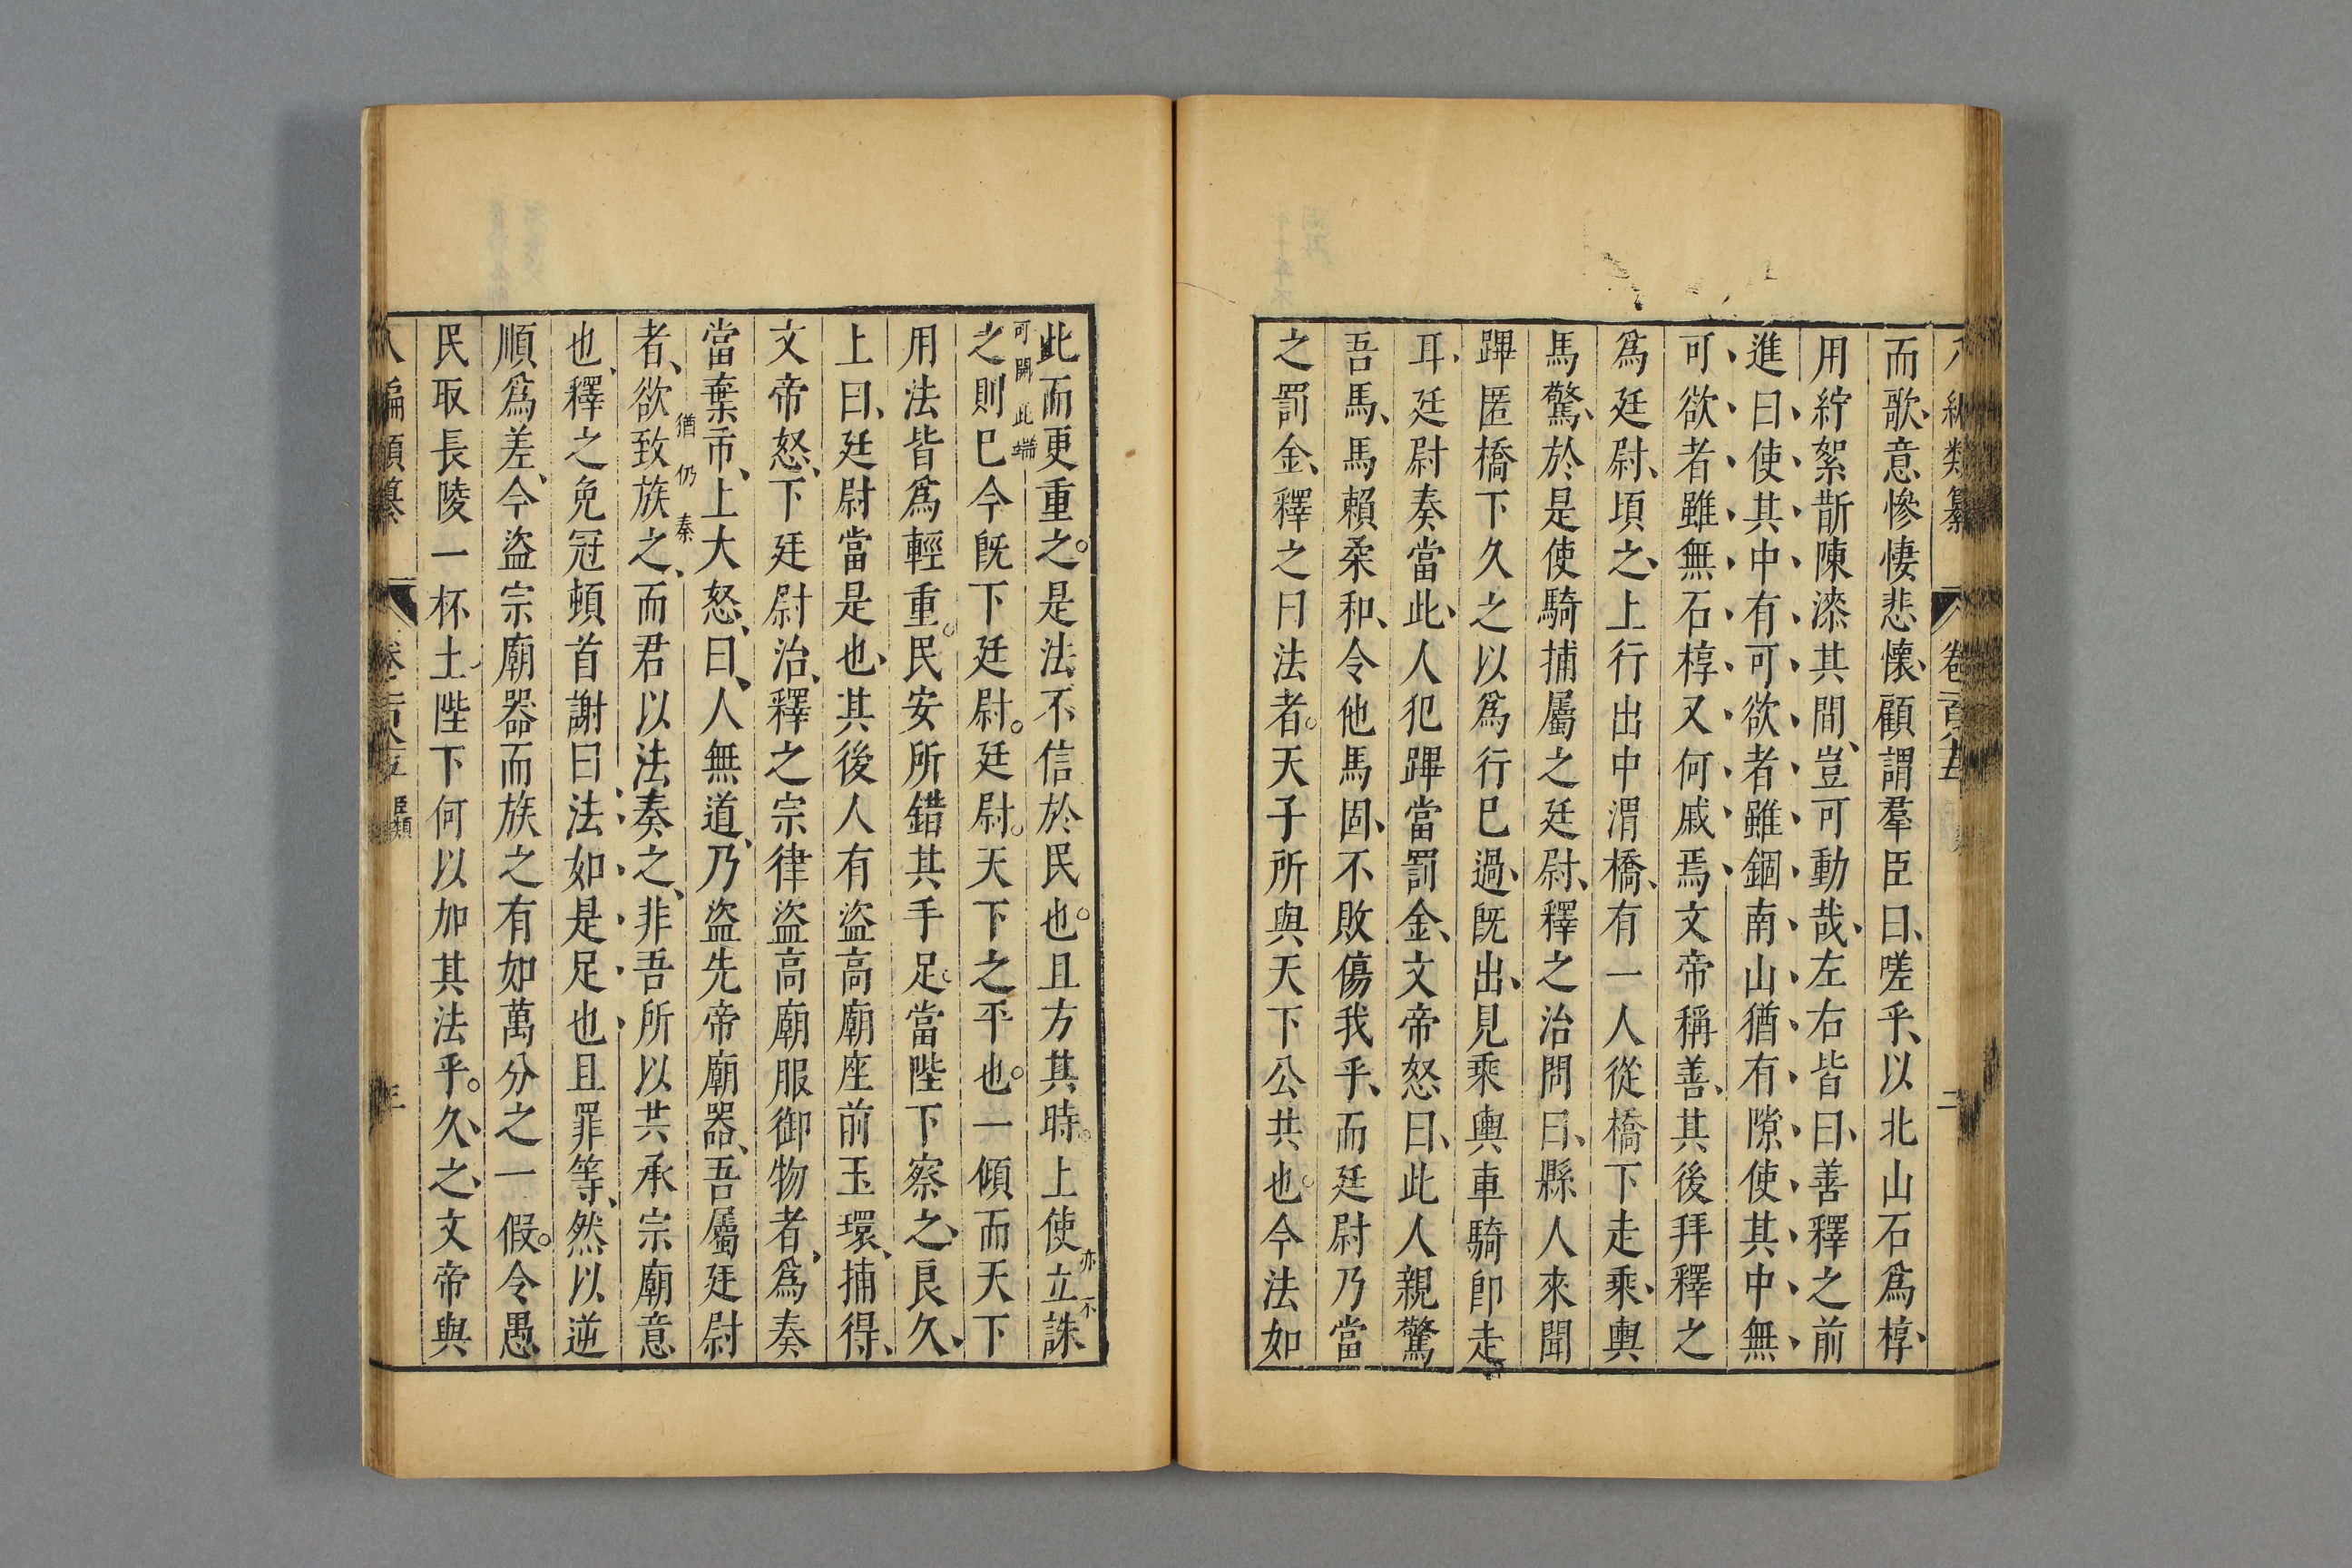 八編類纂 卷一百八十五 二
而歌意慘悽悲懷顧謂羣臣曰嗟乎以北山石爲椁
用紵絮斮陳漆其間豈可動哉左右皆曰善釋之前
進曰使其中有可欲者雖錮南山猶有隙使其中無
可欲者雖無石椁又何戚焉文帝稱善其後拜釋之
爲廷尉頃之上行出中渭橋有一人從橋下走乘輿
馬驚於是使騎捕屬之廷尉釋之治問曰縣人來聞
蹕匿橋下久之以爲行已過旣出見乘輿車騎卽走
耳廷尉奏當此人犯蹕當罰金文帝怒曰此人親驚
吾馬馬賴柔和令他馬固不敗傷我乎而廷尉乃當
之罰金釋之曰法者天子所與天下公共也今法如
此而更重之是法不信於民也且方其時上使立誅
亦不
可開此端
之則已今旣下廷尉廷尉天下之平也一傾而天下
用法皆爲輕重民安所錯其手足當陛下察之良久
上曰廷尉當是也其後人有盜高廟座前玉環捕得
文帝怒下廷尉治釋之宗律盜高廟服御物者爲奏
當棄市上大怒曰人無道乃盜先帝廟器吾屬廷尉
猶仍秦
者欲致族之而君以法奏之非吾所以共承宗廟意
也釋之免冠頓首謝曰法如是足也且罪等然以逆
順爲差今盜宗廟器而族之有如萬分之一假令愚
民取長陵一杯土陛下何以加其法乎久之文帝與
八編類纂 臣類